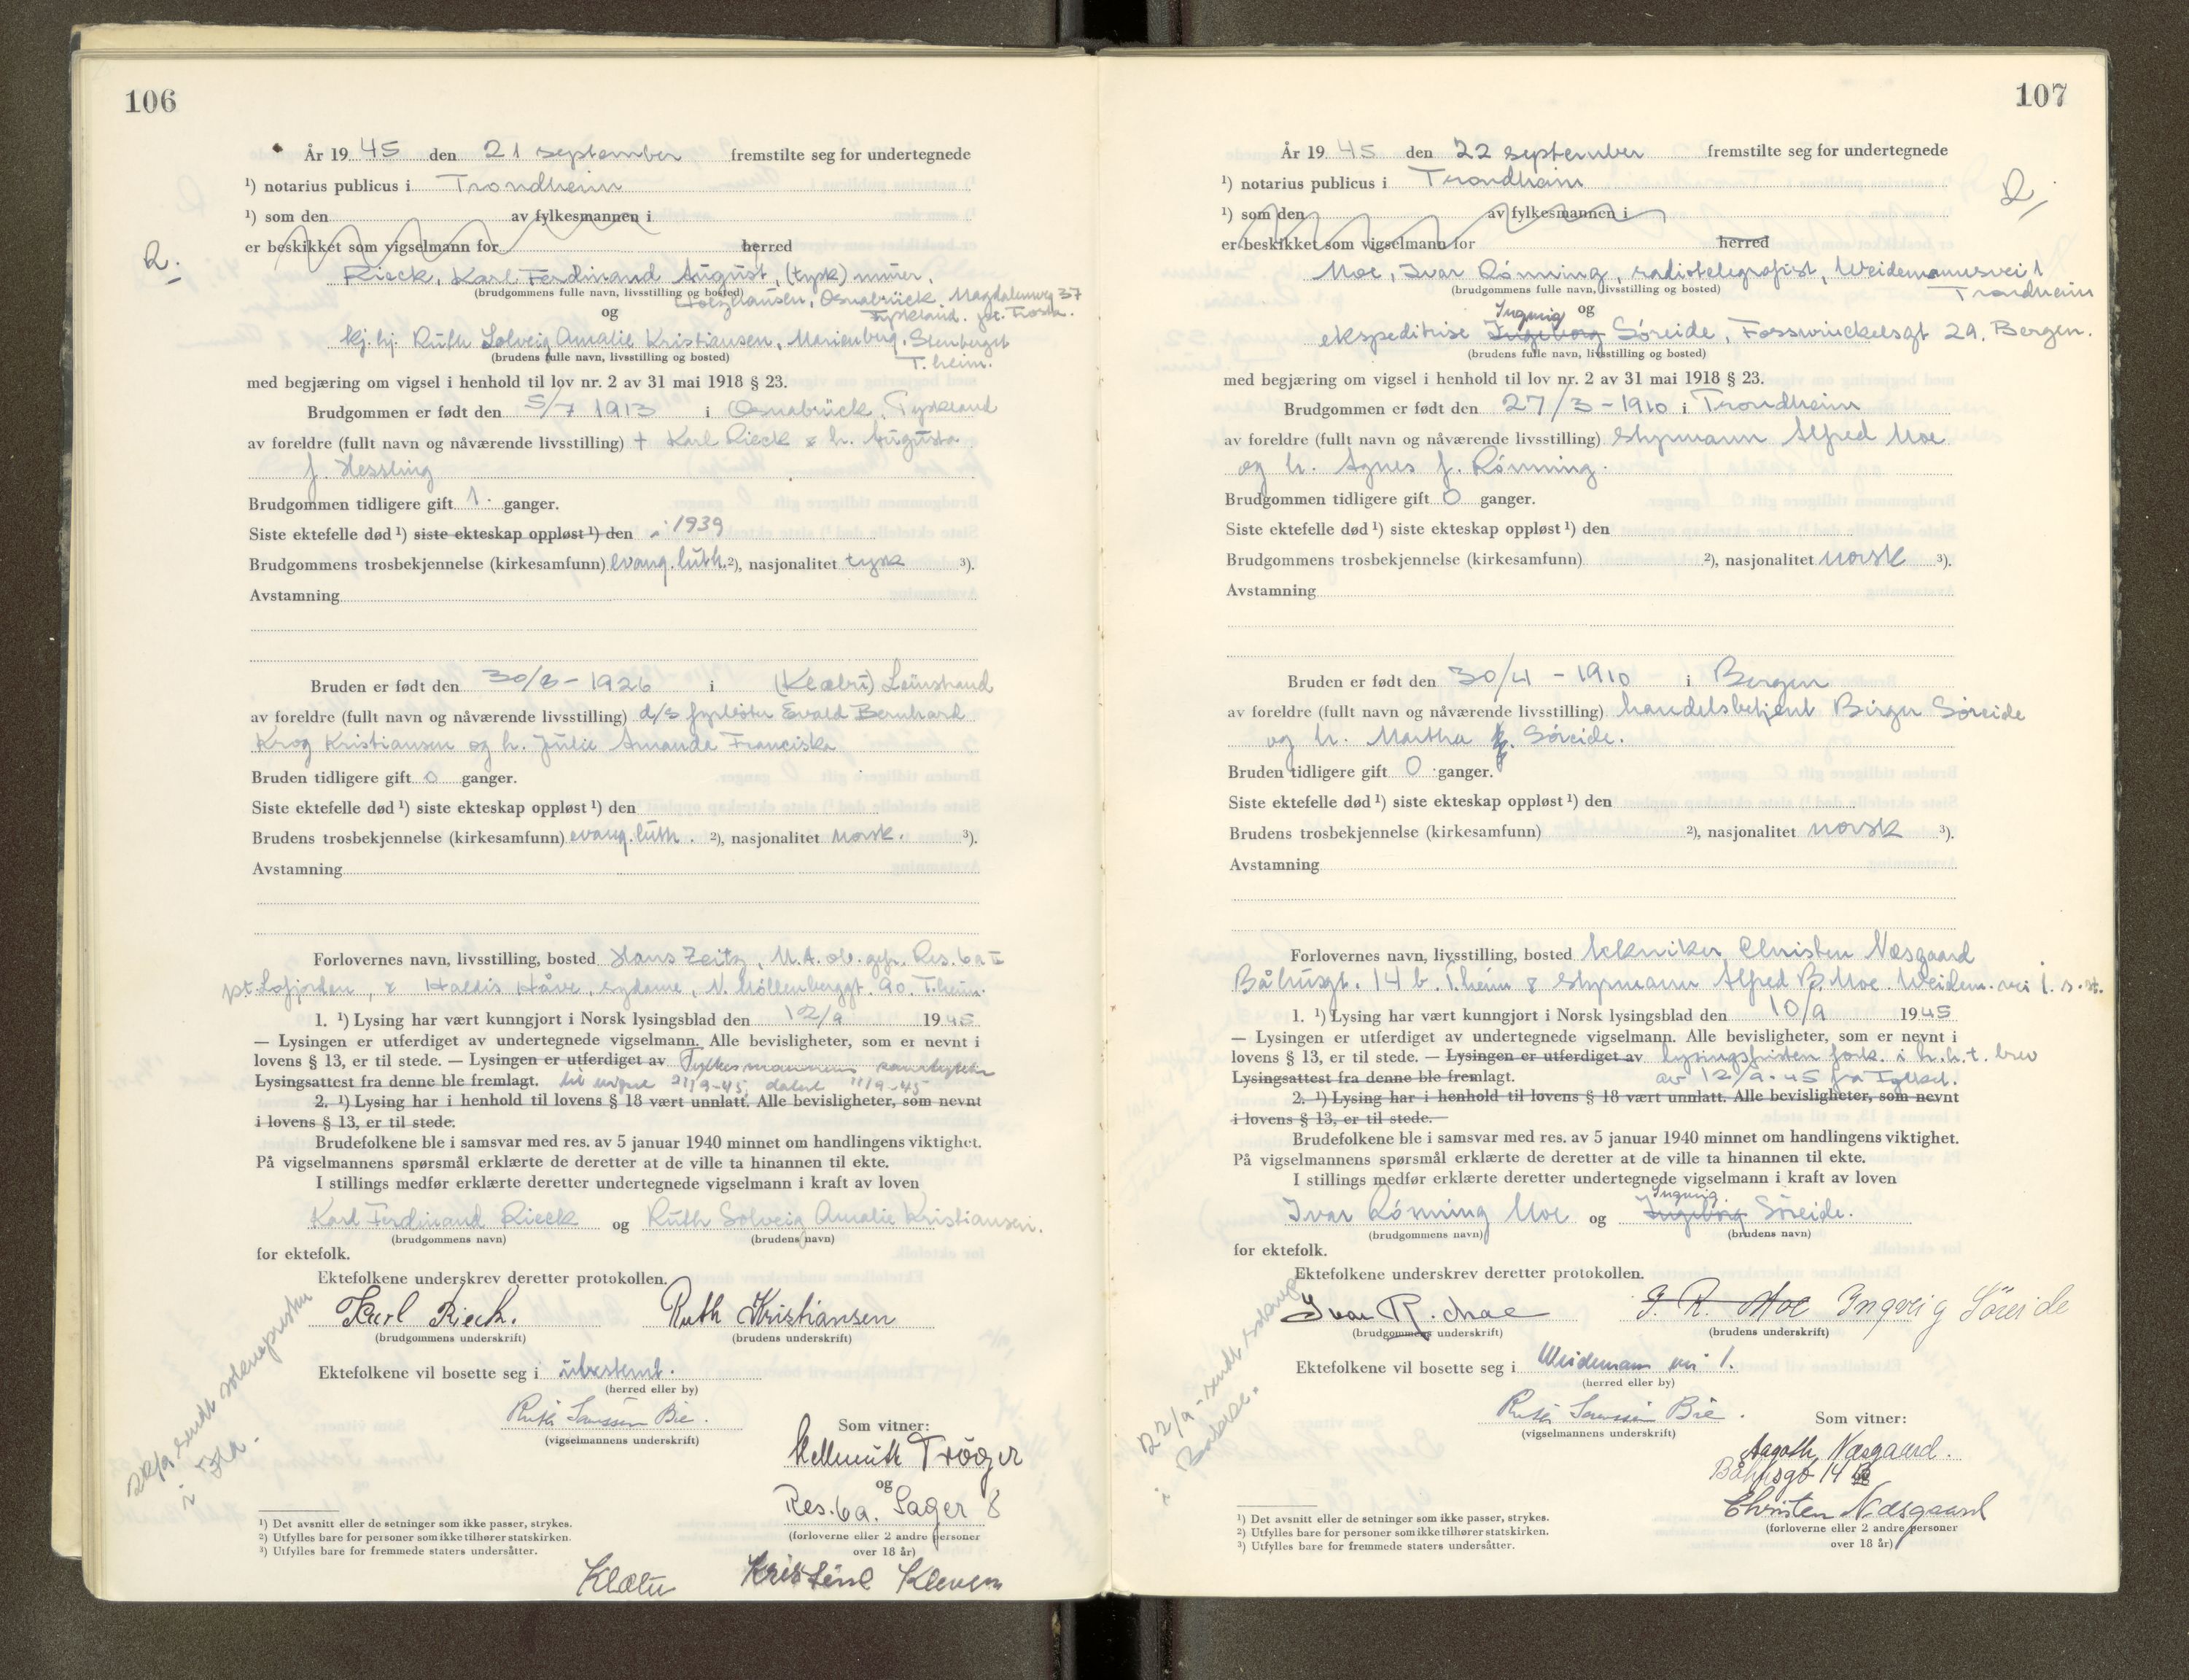 106
År 1945 den 21 september fremstilte seg for undertegnede
¹) notarius publicus i Trondheim
¹) som den av fylkesmannen i
er beskikket som vigselmann for herred
2.
Rieck, Karl Ferdinand August, (tysk) murer,
(brudgommens fulle navn, livsstilling og bosted)
Holzhausen, Osnabrück, Magdalenweg 37
og
Tyskland. pt. Trondh.
kj. hj. Ruth Solveig Amalie Kristiansen, Marienberg, Stenberget
(brudens fulle navn, livsstilling og bosted)
T.heim.
med begjæring om vigsel i henhold til lov nr. 2 av 31 mai 1918 § 23.
Brudgommen er født den 5/7 1913 i Osnabrück, Tyskland
av foreldre (fullt navn og nåværende livsstilling) + Karl Rieck & h. Augusta
f. Hessling
Brudgommen tidligere gift 1. ganger.
Siste ektefelle død ¹) siste ekteskap oppløst ¹) den 1939
Brudgommens trosbekjennelse (kirkesamfunn) evang. luth. ²), nasjonalitet tysk ³).
Avstamning
Bruden er født den 30/8 - 1926 i (Klæbu) Leinstrand
av foreldre (fullt navn og nåværende livsstilling) d/s fyrbøter Evald Bernhard
Krog Kristiansen og h. Julie Amanda Franciska
Bruden tidligere gift 0 ganger.
Siste ektefelle død ¹) siste ekteskap oppløst ¹) den
Brudens trosbekjennelse (kirkesamfunn) evang. luth. ²), nasjonalitet norsk. ³).
Avstamning
Forlovernes navn, livsstilling, bosted Hans Zeitz, M.A. ob. gefr. Res. 6a II
pt. Lofjorden, & Haldis Håve, sydame, N. Møllenberggt. 90. T.heim.
1. ¹) Lysing har vært kunngjort i Norsk lysingsblad den 12/9 1945
— Lysingen er utferdiget av undertegnede vigselmann. Alle bevisligheter, som er nevnt i
lovens § 13, er til stede. — Lysingen er utferdiget av Fylkesmannens samtykke
Lysingsattest fra denne ble fremlagt. til vigsel 21/9-45, datert 11/9-45
2. ¹) Lysing har i henhold til lovens § 18 vært unnlatt. Alle bevisligheter, som nevnt
i lovens § 13, er til stede.
Brudefolkene ble i samsvar med res. av 5 januar 1940 minnet om handlingens viktighet.
På vigselmannens spørsmål erklærte de deretter at de ville ta hinannen til ekte.
I stillings medfør erklærte deretter undertegnede vigselmann i kraft av loven
Karl Ferdinand Rieck og Ruth Solveig Amalie Kristiansen.
(brudgommens navn) (brudens navn)
for ektefolk.
Ektefolkene underskrev deretter protokollen.
Karl Rieck. Ruth Kristiansen
(brudgommens underskrift) (brudens underskrift)
Ektefolkene vil bosette seg i ubestemt.
(herred eller by)
Ruth Sanssen Bie.
(vigselmannens underskrift)
Som vitner:
Hellmuth Tröger
og
Res. 6a. Lager 8
(forloverne eller 2 andre personer
over 18 år)
Klæbu Kristine Kleven
22/9 sendt sokneprester
i Bla.
¹) Det avsnitt eller de setninger som ikke passer, strykes.
²) Utfylles bare for personer som ikke tilhører statskirken.
³) Utfylles bare for fremmede staters undersåtter.
107
År 1945 den 22 september fremstilte seg for undertegnede
¹) notarius publicus i Trondheim
2,
¹) som den av fylkesmannen i
er beskikket som vigselmann for herred
Moe, Ivar Rønning, radiotelegrafist, Weidemannsvei 1
(brudgommens fulle navn, livsstilling og bosted)
Trondheim
Ingveig og
ekspeditrise Ingeborg Søreide, Fosswinckelsgt 29. Bergen.
(brudens fulle navn, livsstilling og bosted)
med begjæring om vigsel i henhold til lov nr. 2 av 31 mai 1918 § 23.
Brudgommen er født den 27/3 - 1910 i Trondheim
av foreldre (fullt navn og nåværende livsstilling) styrmann Alfred Moe
og h. Agnes f. Rønning.
Brudgommen tidligere gift 0 ganger.
Siste ektefelle død ¹) siste ekteskap oppløst ¹) den
Brudgommens trosbekjennelse (kirkesamfunn) ²), nasjonalitet norsk ³).
Avstamning
Bruden er født den 30/4 - 1910 i Bergen
av foreldre (fullt navn og nåværende livsstilling) handelsbetjent Birger Søreide
og h. Martha f. Søreide.
Bruden tidligere gift 0 ganger.
Siste ektefelle død ¹) siste ekteskap oppløst ¹) den
Brudens trosbekjennelse (kirkesamfunn) ²), nasjonalitet norsk ³).
Avstamning
Forlovernes navn, livsstilling, bosted tekniker Christen Næsgaard
Båhusgt. 14 b. T.heim & styrmann Alfred B. Moe. Weidem. vei 1. s. st.
1. ¹) Lysing har vært kunngjort i Norsk lysingsblad den 10/9 1945
— Lysingen er utferdiget av undertegnede vigselmann. Alle bevisligheter, som er nevnt i
lovens § 13, er til stede. — Lysingen er utferdiget av lysingsfristen fork. i h.h.t. brev
Lysingsattest fra denne ble fremlagt. av 12/9-45 fra Fylked.
2. ¹) Lysing har i henhold til lovens § 18 vært unnlatt. Alle bevisligheter, som nevnt
i lovens § 13, er til stede.
Brudefolkene ble i samsvar med res. av 5 januar 1940 minnet om handlingens viktighet.
På vigselmannens spørsmål erklærte de deretter at de ville ta hinannen til ekte.
I stillings medfør erklærte deretter undertegnede vigselmann i kraft av loven
Ingveig.
Ivar Rønning Moe og Ingeborg Søreide.
(brudgommens navn) (brudens navn)
for ektefolk.
Ektefolkene underskrev deretter protokollen.
Ivar R. Moe I. R. Moe Ingveig Søreide
(brudgommens underskrift) (brudens underskrift)
Ektefolkene vil bosette seg i Weidemans vei 1.
(herred eller by)
Ruth Sanssen Bie.
(vigselmannens underskrift)
Som vitner:
Aagoth Næsgaard.
Båhusgt 14 B
Christen Næsgaard
(forloverne eller 2 andre personer
over 18 år)
22/9 - sendt
i
¹) Det avsnitt eller de setninger som ikke passer, strykes.
²) Utfylles bare for personer som ikke tilhører statskirken.
³) Utfylles bare for fremmede staters undersåtter.